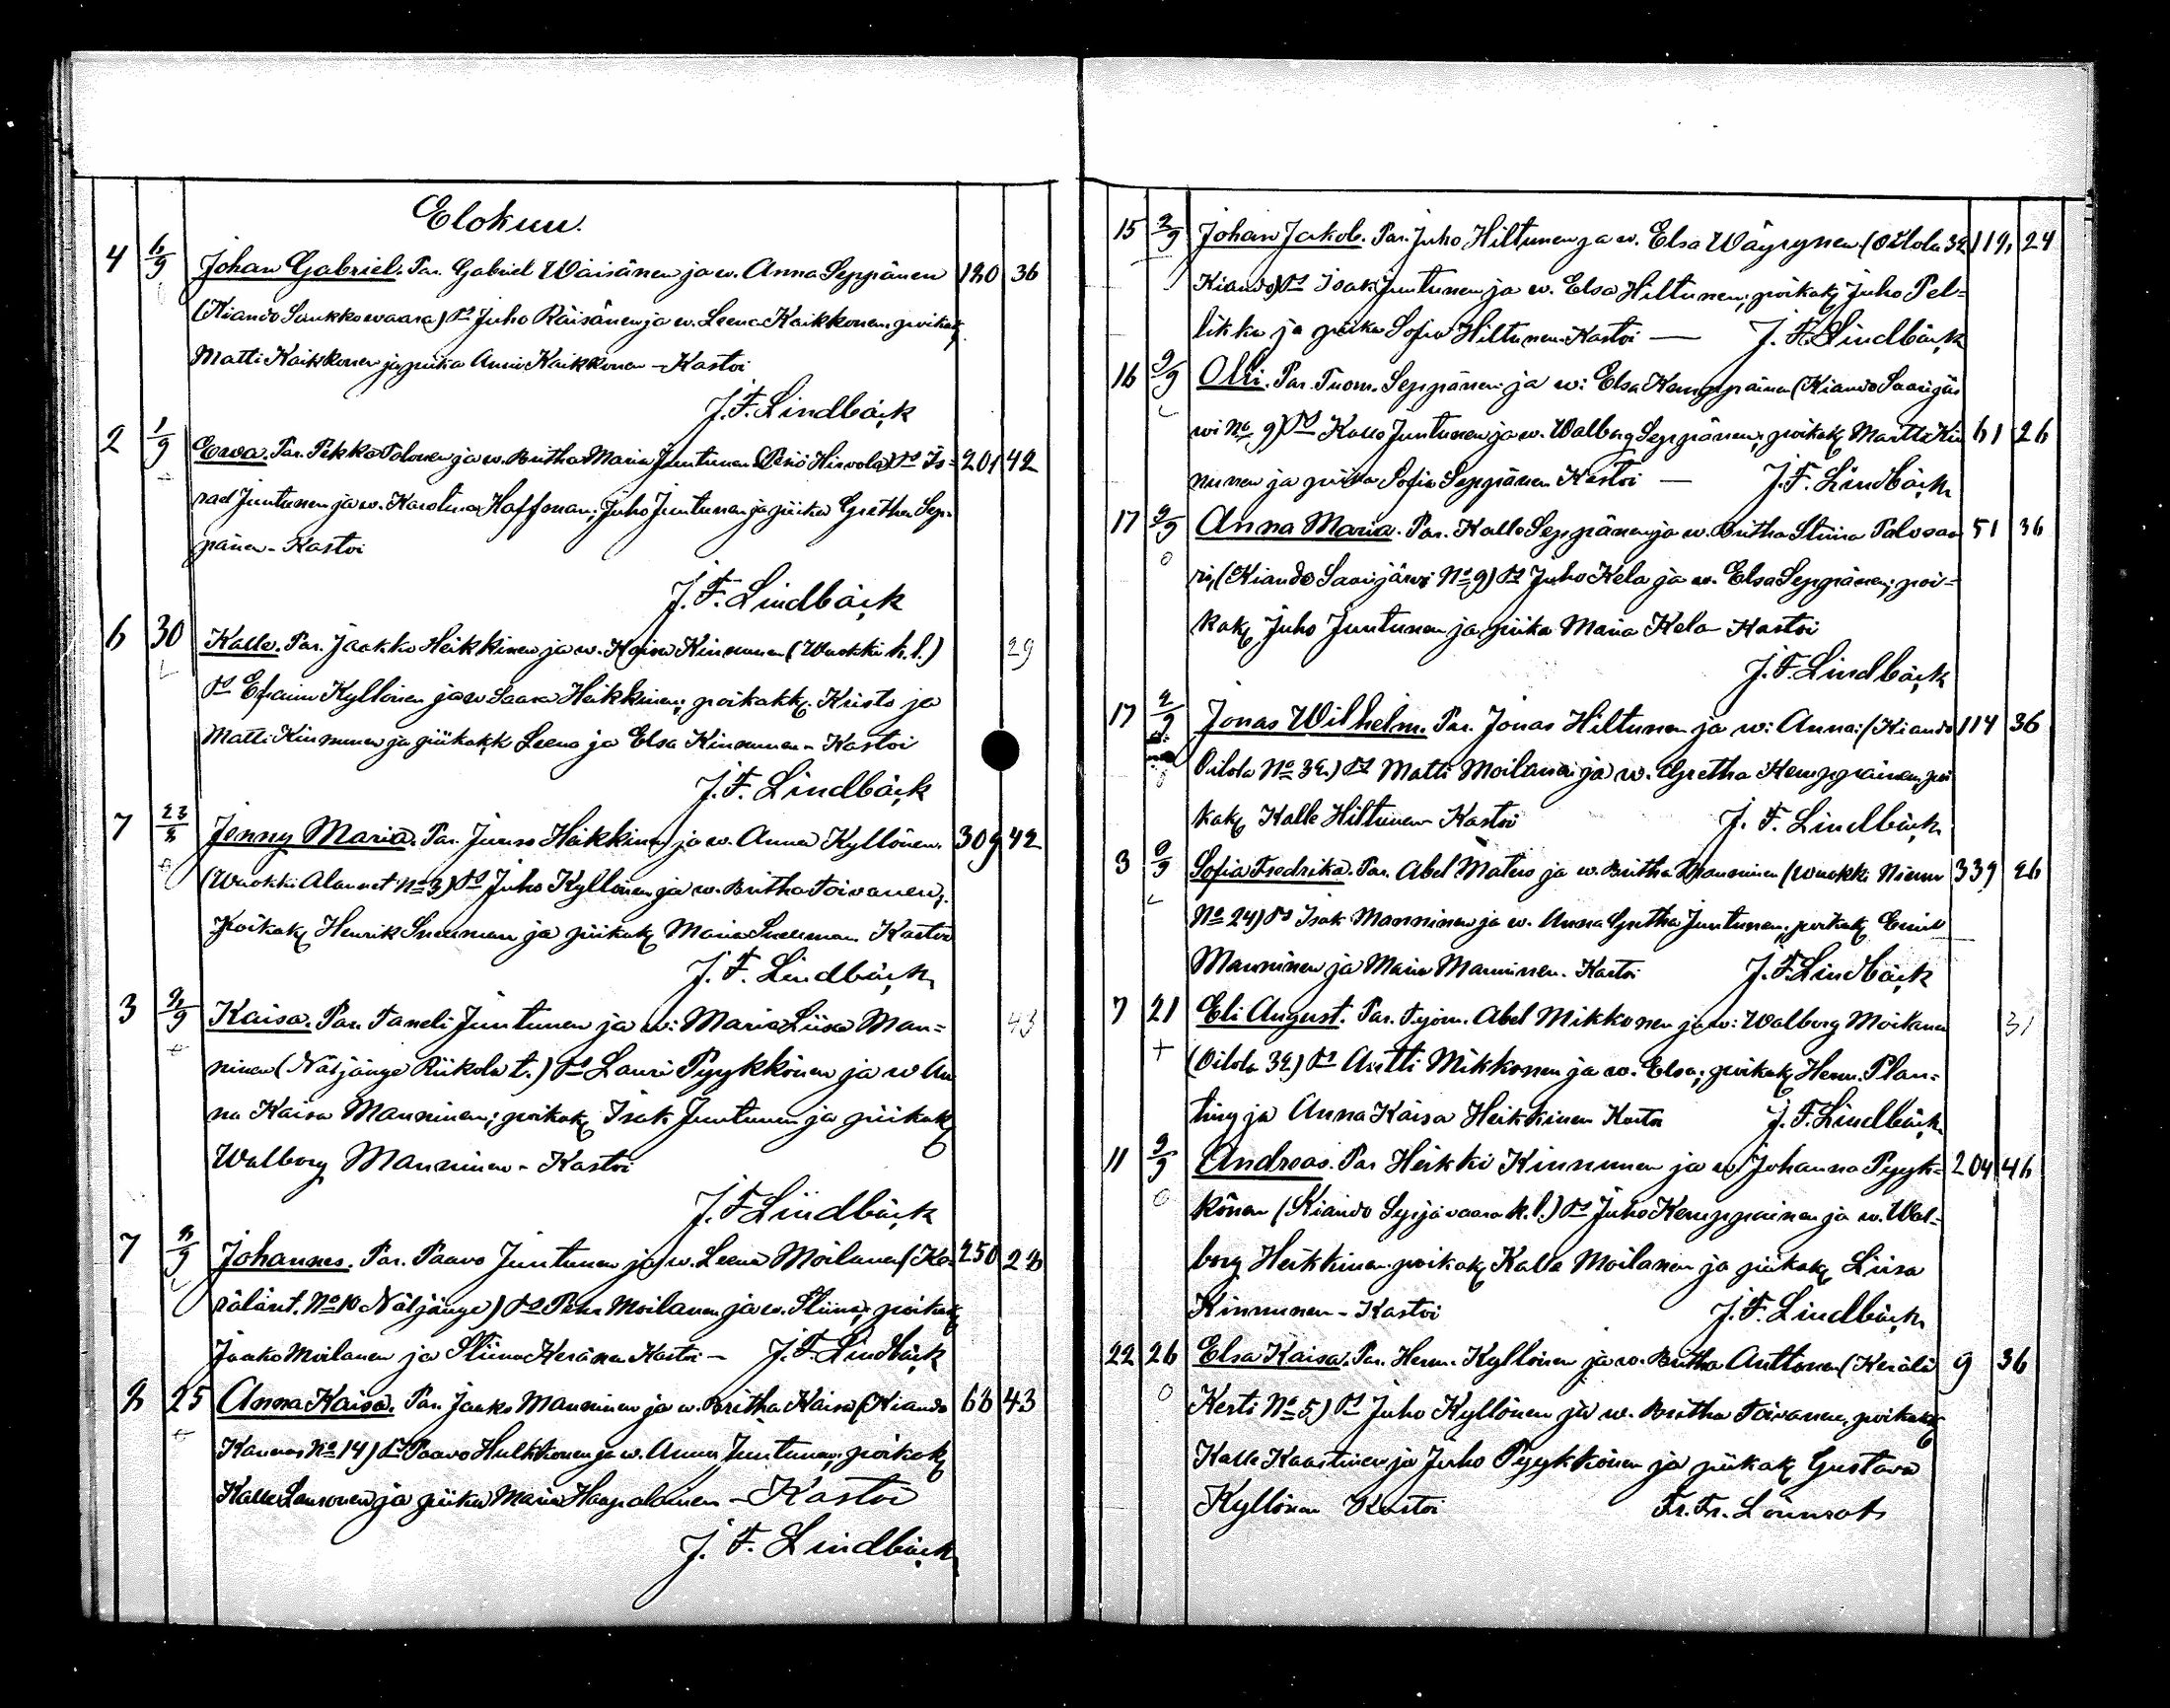 Elokuu.
4 1/9 Johan Gabriel. Par. Gabriel Wäisänen ja w. Anna Seppänen 180 36
(Kiando Saukkowaara) Juho Räisänen ja w. Leena Kaikkonen, poikak.
Matti Kaikkonen ja piika Anni Kaikkonen - Kastoi
J. F. Lindbäck
2 1/9 Ewa. Par. Pekka Polonen ja w. Britha Maria Juntunen (Hirvola) Is= 201 42
rael Juntunen ja w. Karolina Haffman; Juho Juntunen ja piika Gretha Sep=
pänen - Kastoi
J. F. Lindbäck
6 30 Kalle. Par. Jaakko Heikkinen ja w. Kaisa Kinnunen (Wuokki k.l.) 29
Efraim Kyllönen ja w Saara Heikkinen; poikakk. Kristo ja
Matti Kinnunen ja piikakk Leena ja Elsa Kinnunen - Kastoi
J. F. Lindbäck
7 Jenny Maria. Par. Junno Heikkinen ja w. Anna Kyllönen. 309 42
(Wuokki Alannet No 3) Juho Kyllönen ja w. Britha Toivanen;
Poikak Henrik Sneeman ja piikak Maria Sneeman Kastoi
J. F. Lindbäck
3 2/9 Kaisa. Par. Taneli Juntunen ja w: Maria Liisa Man= 43
ninen (Nätjänge Riikola t.) Lauri Pyykkönen ja w An
na Kaisa Manninen; poikak Isak Juntunen ja piikak
Walborg Manninen - Kastoi
J. F. Lindbäck
7 2/9 Johannes. Par. Paavo Juntunen ja w. Leena Moilanen (Ke 250 28
rälänt. No 10 Nätjänge) Pekka Moilanen ja w. Stiina; poikak
Jaako Moilanen ja Stiina Keränen Kastoi - J. F. Lindbäck
8 25 Anna Kaisa. Par. Jaako Manninen ja w. Britha Kaisa (Kiando 68 43
Kannas No 14) Paavo Hulkkonen ja w. Anna Juntunen; poikak
Kalle ja piika Maria Haapalainen - Kastoi
J. F. Lindbäck
15 2/9 Johan Jakob. Par. Juho Hiltunen ja w. Elsa Wäyrynen (Oilola 32 119 24
Kiando) Isak Juntunen ja w. Elsa Hiltunen; poikak Juho Pel=
likka ja piika Sofia Hiltunen Kastoi — J. F. Lindbäck
16 2/9 Olli. Par. Tuom. Seppänen ja w: Elsa Kemppainen (Kiando Saarijär
wi No 9) Kalle Juntunen ja w. Walborg Seppänen; poikak Martti Kin 61 26
nunen ja piika Sofia Seppänen Kastoi — J. F. Lindbäck
17 2/9 Anna Maria. Par. Kalle Seppänen ja w. Britha Stiina Palosaa 51 36
ri, (Kiando Saarijärwi No 9) Juho Kela ja w. Elsa Seppänen; poi=
kak Juho Juntunen ja piika Maria Kela Kastoi
J. F. Lindbäck
17 2/9 Jonas Wilhelm. Par. Jonas Hiltunen ja w: Anna: (Kiando 114 36
Oilola No 32) Matti Moilanen ja w. Gretha Kemppainen, poi
kak Kalle Hiltunen Kastoi J. F. Lindbäck
3 Sofia Fredrika. Par. Abel Matero ja w. Britha Manninen (Wuokki Niemi 339 26
No 24) Isak Manninen ja w. Anna Gretha Juntunen; poikak Emil
Manninen ja Maria Manninen. Kastoi J. F. Lindbäck
7 21 Eli August. Par. Työm. Abel Mikkonen ja w: Walborg Moilanen 31
(Oilola 32) Antti Mikkonen ja w. Elsa; poikak Herm. Plan=
ting ja Anna Kaisa Heikkinen Kastoi J. F. Lindbäck
11 2/9 Andreas. Par Heikki Kinnunen ja w Johanna Pyyk= 204 46
könen (Kiando Syrjävaara k.l.) Juho Kemppainen ja w. Wal=
borg Heikkinen poikak Kalle Moilanen ja piikak Liisa
Kinnunen - Kastoi J. F. Lindbäck
22 26 Elsa Kaisa. Par. Herm. Kyllönen ja w. Britha Anttonen (Kerälä 9 36
Kesti No 5) Juho Kyllönen ja w. Britha Toivanen, poikak
Kalle Kaartinen ja Juho Pyykkönen ja piikak Gustava
Kyllönen Kastoi Fr. Fr. Lönnrot